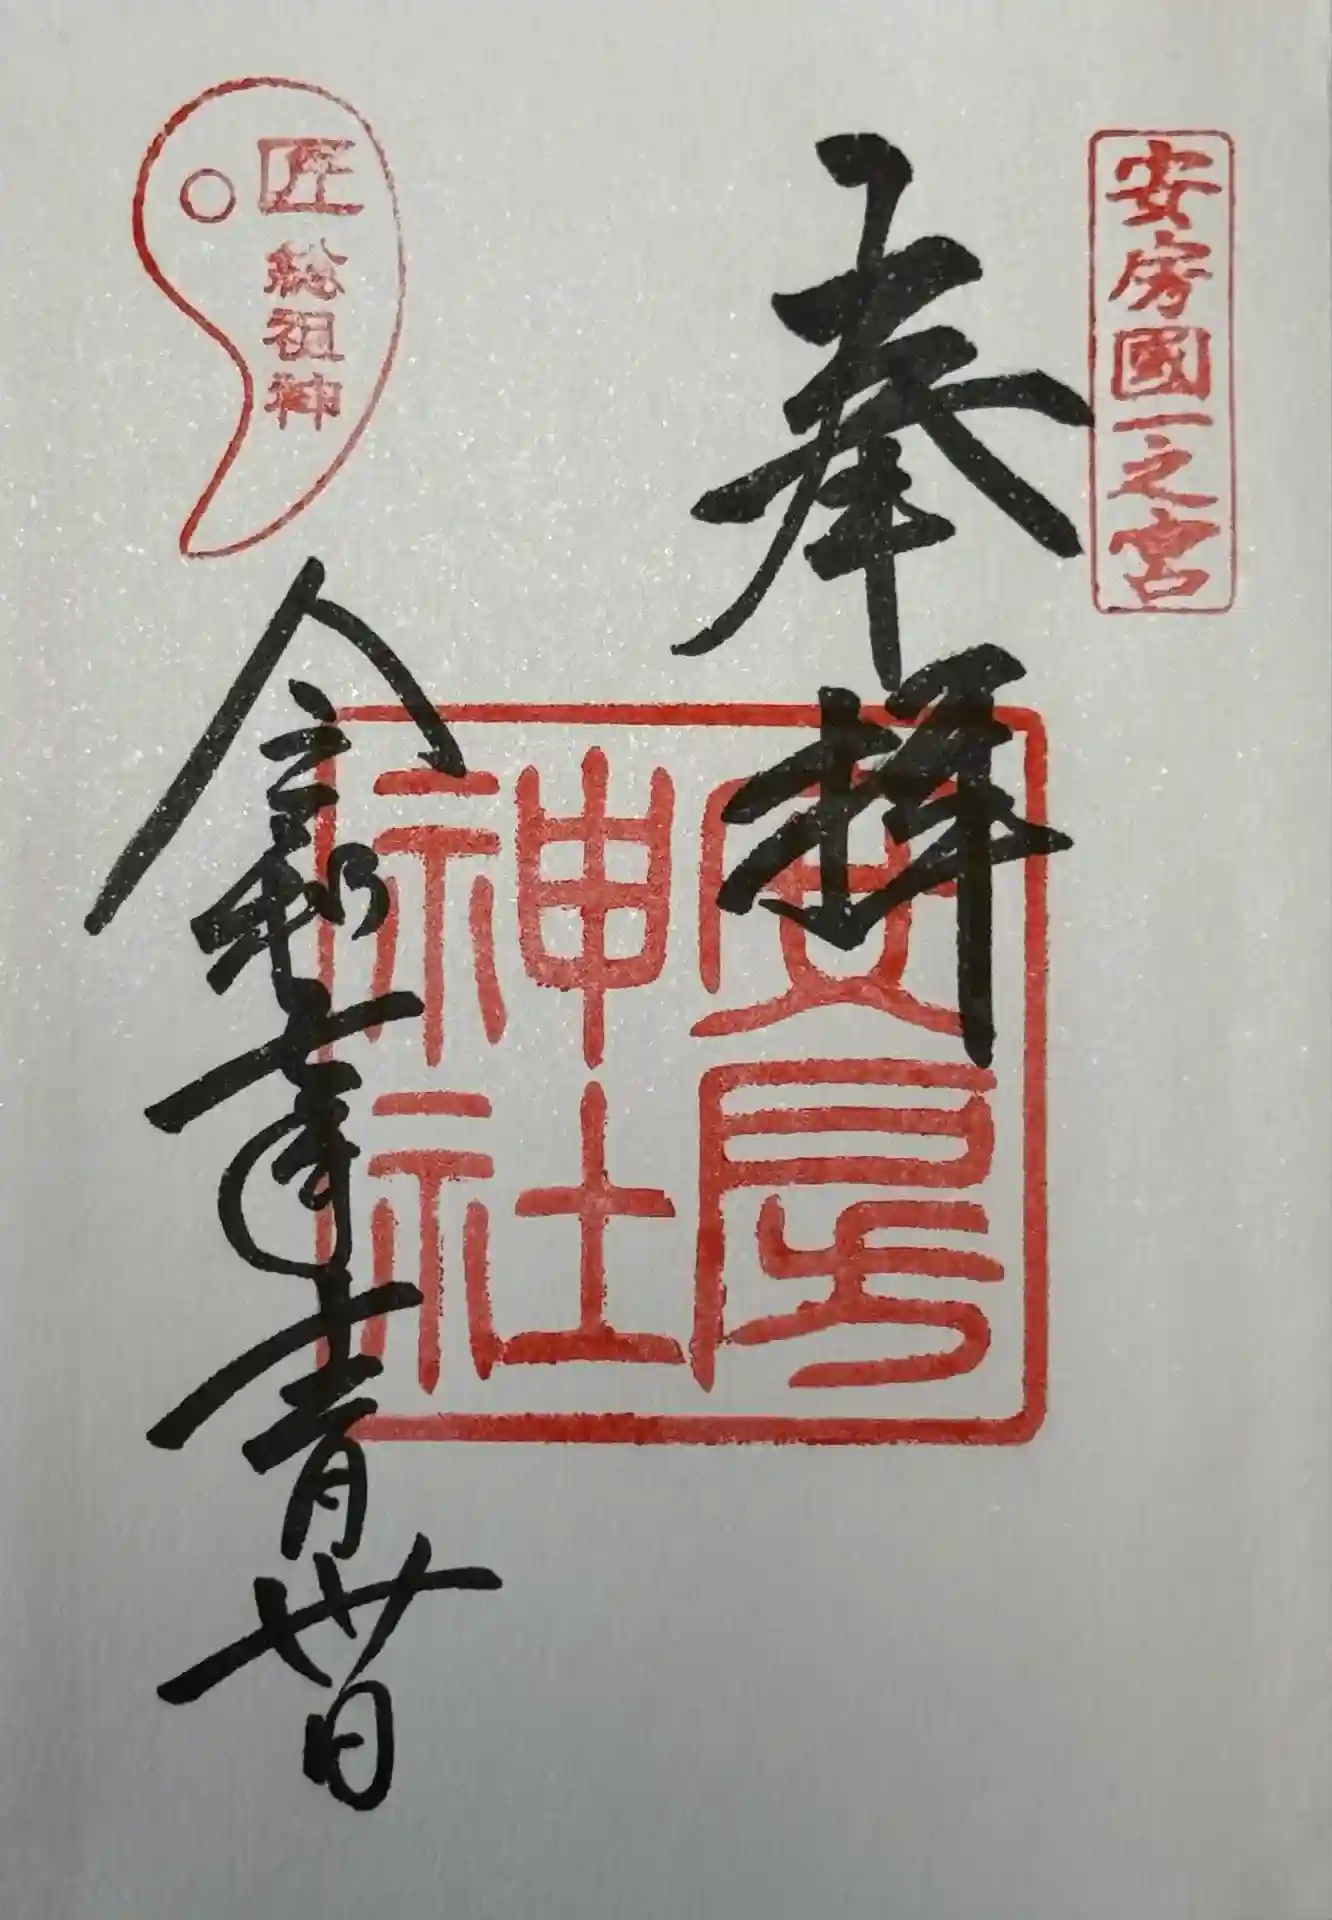 安房國一之宮
奉拝
安房
神社
匠総祖神
令和七年十一月卅日